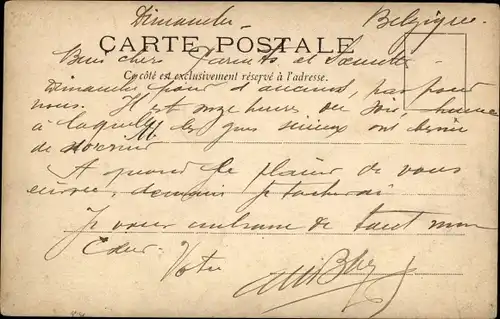 Dimanche Belgique
CARTE POSTALE
Biens chers Parents et Soeurette
Ce côté est exclusivement réservé à l'adresse.
Dimanche pour d'aucuns, pas pour
nous. Il est onze heures du soir, heure
à laquelle les gens sérieux ont besoin
de
A quand le plaisir de vous
demain je tacherai
Je vous embrasse de tout mon
Coeur.
Votre